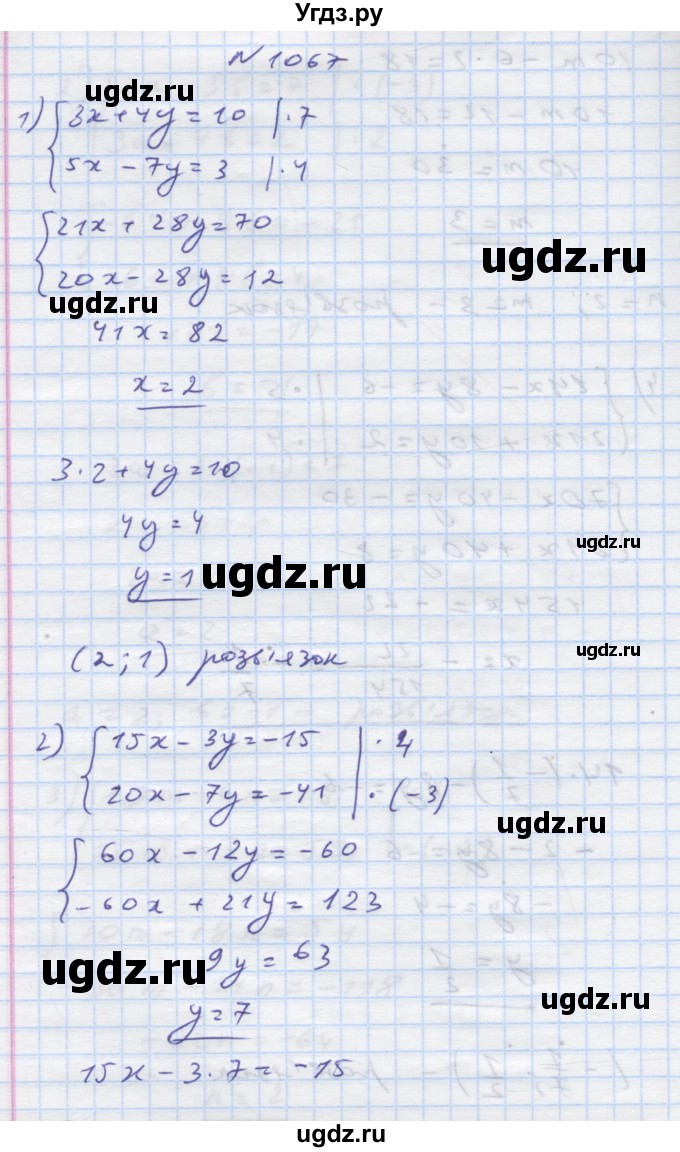 Угдз.ру
N 1067
ugdz.ru
1) { 3x + 4y = 10 | · 7
5x - 7y = 3 | · 4
{ 21x + 28y = 70
ugdz.ru
20x - 28y = 12
ugdz.ru
41x = 82
x = 2
3 · 2 + 4y = 10
4y = 4
ugdz.ru
y = 1
ugdz.ru
(2; 1) розв'язок
ugdz.ru
2) { 15x - 3y = -15 | · 4
20x - 7y = -41 | · (-3)
ugdz.ru
{ 60x - 12y = -60
-60x + 21y = 123
9y = 63
ugdz.ru
y = 7
ugdz.ru
15x - 3 · 7 = -15
ugdz.ru